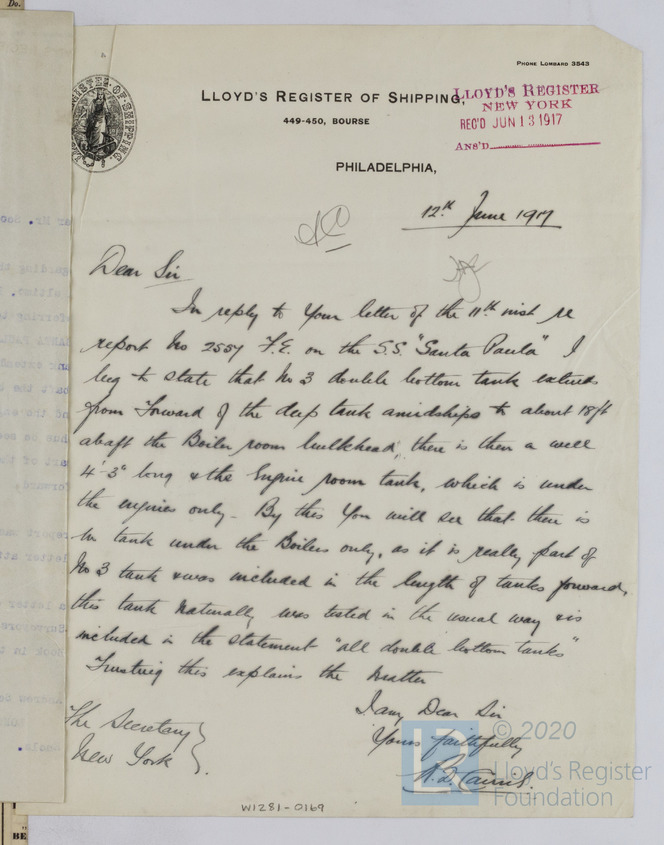 Do.
PHONE LOMBARD 3543
LLOYD'S REGISTER OF SHIPPING,
449-450, BOURSE
PHILADELPHIA,
LLOYD'S REGISTER
NEW YORK
REC'D JUN 13 1917
ANS'D
12th June 1917
Dear Sir
In reply to your letter of the 11th inst re
report No 2557 F.E. on the S.S. "Santa Paula" I
beg to state that No 3 double bottom tank extends
from forward of the deep tank amidships to about 18ft
abaft the Boiler room bulkhead, there is then a well
4'-3" long & the Engine room tank, which is under
the engines only. By this you will see that there is
no tank under the Boilers only, as it is really part of
No 3 tank & was included in the length of tanks forward,
this tank naturally was tested in the usual way & is
included in the statement "all double bottom tanks"
Trusting this explains the matter
I am, Dear Sir
Yours faithfully
The Secretary
New York
W1281-0169
© 2020
Lloyd's Register
Foundation
LR
BE